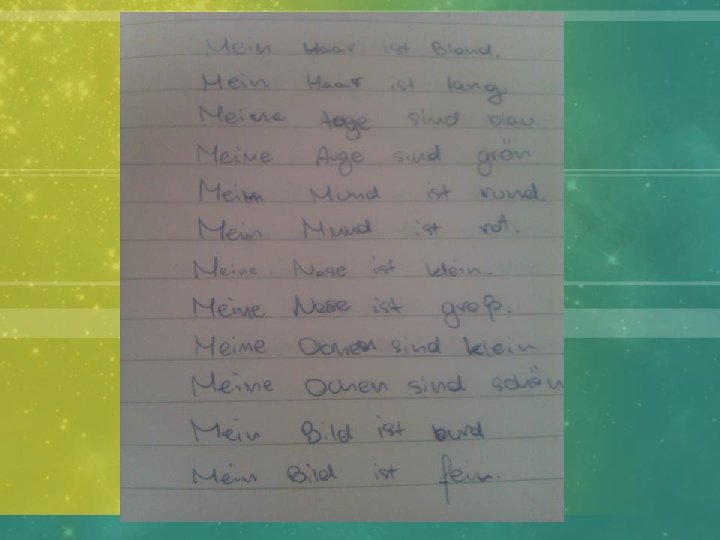 Mein Haar ist Blond.
Mein Haar ist lang
Meiene Aoge sind blau
Meine Auge sind grön
Mein Mund ist rund.
Mein Mund ist rot.
Meine Nose ist klein.
Meine Nose ist groß.
Meine Ochen sind klein
Meine Ochen sind schön
Mein Bild ist
Mein Bild ist fein.